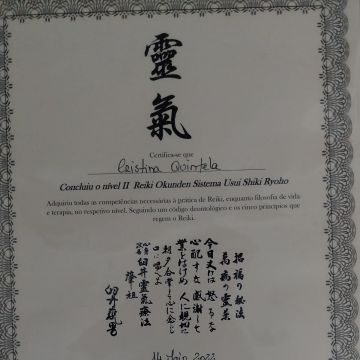 靈
氣
Certifica-se que
Cristina Quintela
Concluiu o nível II Reiki Okunden Sistema Usui Shiki Ryoho
Adquiriu todas as competências necessárias à prática de Reiki, enquanto filosofia de vida
e terapia, no respetivo nível. Seguindo um código deontológico e os cinco princípios que
regem o Reiki.
招福の秘法
萬病の靈薬
今日丈けは 怒るな
心配すな 感謝して
業をはげめ 人に親切に
朝夕合掌して心に念じ
口に唱へよ
心身改善 臼井靈氣療法
肇祖
臼井甕男